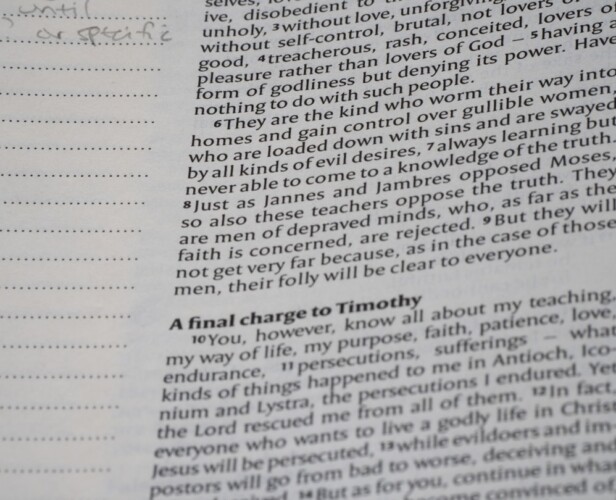 until
or specific
selves, lo
ive, disobedient to
unholy, ³without love, unforgiving
without self-control, brutal, not lovers of
good, ⁴treacherous, rash, conceited, lovers of
pleasure rather than lovers of God – ⁵having a
form of godliness but denying its power. Have
nothing to do with such people.
⁶They are the kind who worm their way into
homes and gain control over gullible women,
who are loaded down with sins and are swayed
by all kinds of evil desires, ⁷always learning but
never able to come to a knowledge of the truth.
⁸Just as Jannes and Jambres opposed Moses,
so also these teachers oppose the truth. They
are men of depraved minds, who, as far as the
faith is concerned, are rejected. ⁹But they will
not get very far because, as in the case of those
men, their folly will be clear to everyone.
A final charge to Timothy
¹⁰You, however, know all about my teaching,
my way of life, my purpose, faith, patience, love,
endurance, ¹¹persecutions, sufferings – what
kinds of things happened to me in Antioch, Ico-
nium and Lystra, the persecutions I endured. Yet
the Lord rescued me from all of them. ¹²In fact,
everyone who wants to live a godly life in Christ
Jesus will be persecuted, ¹³while evildoers and im-
postors will go from bad to worse, deceiving and
¹⁴But as for you, continue in what
convinced of